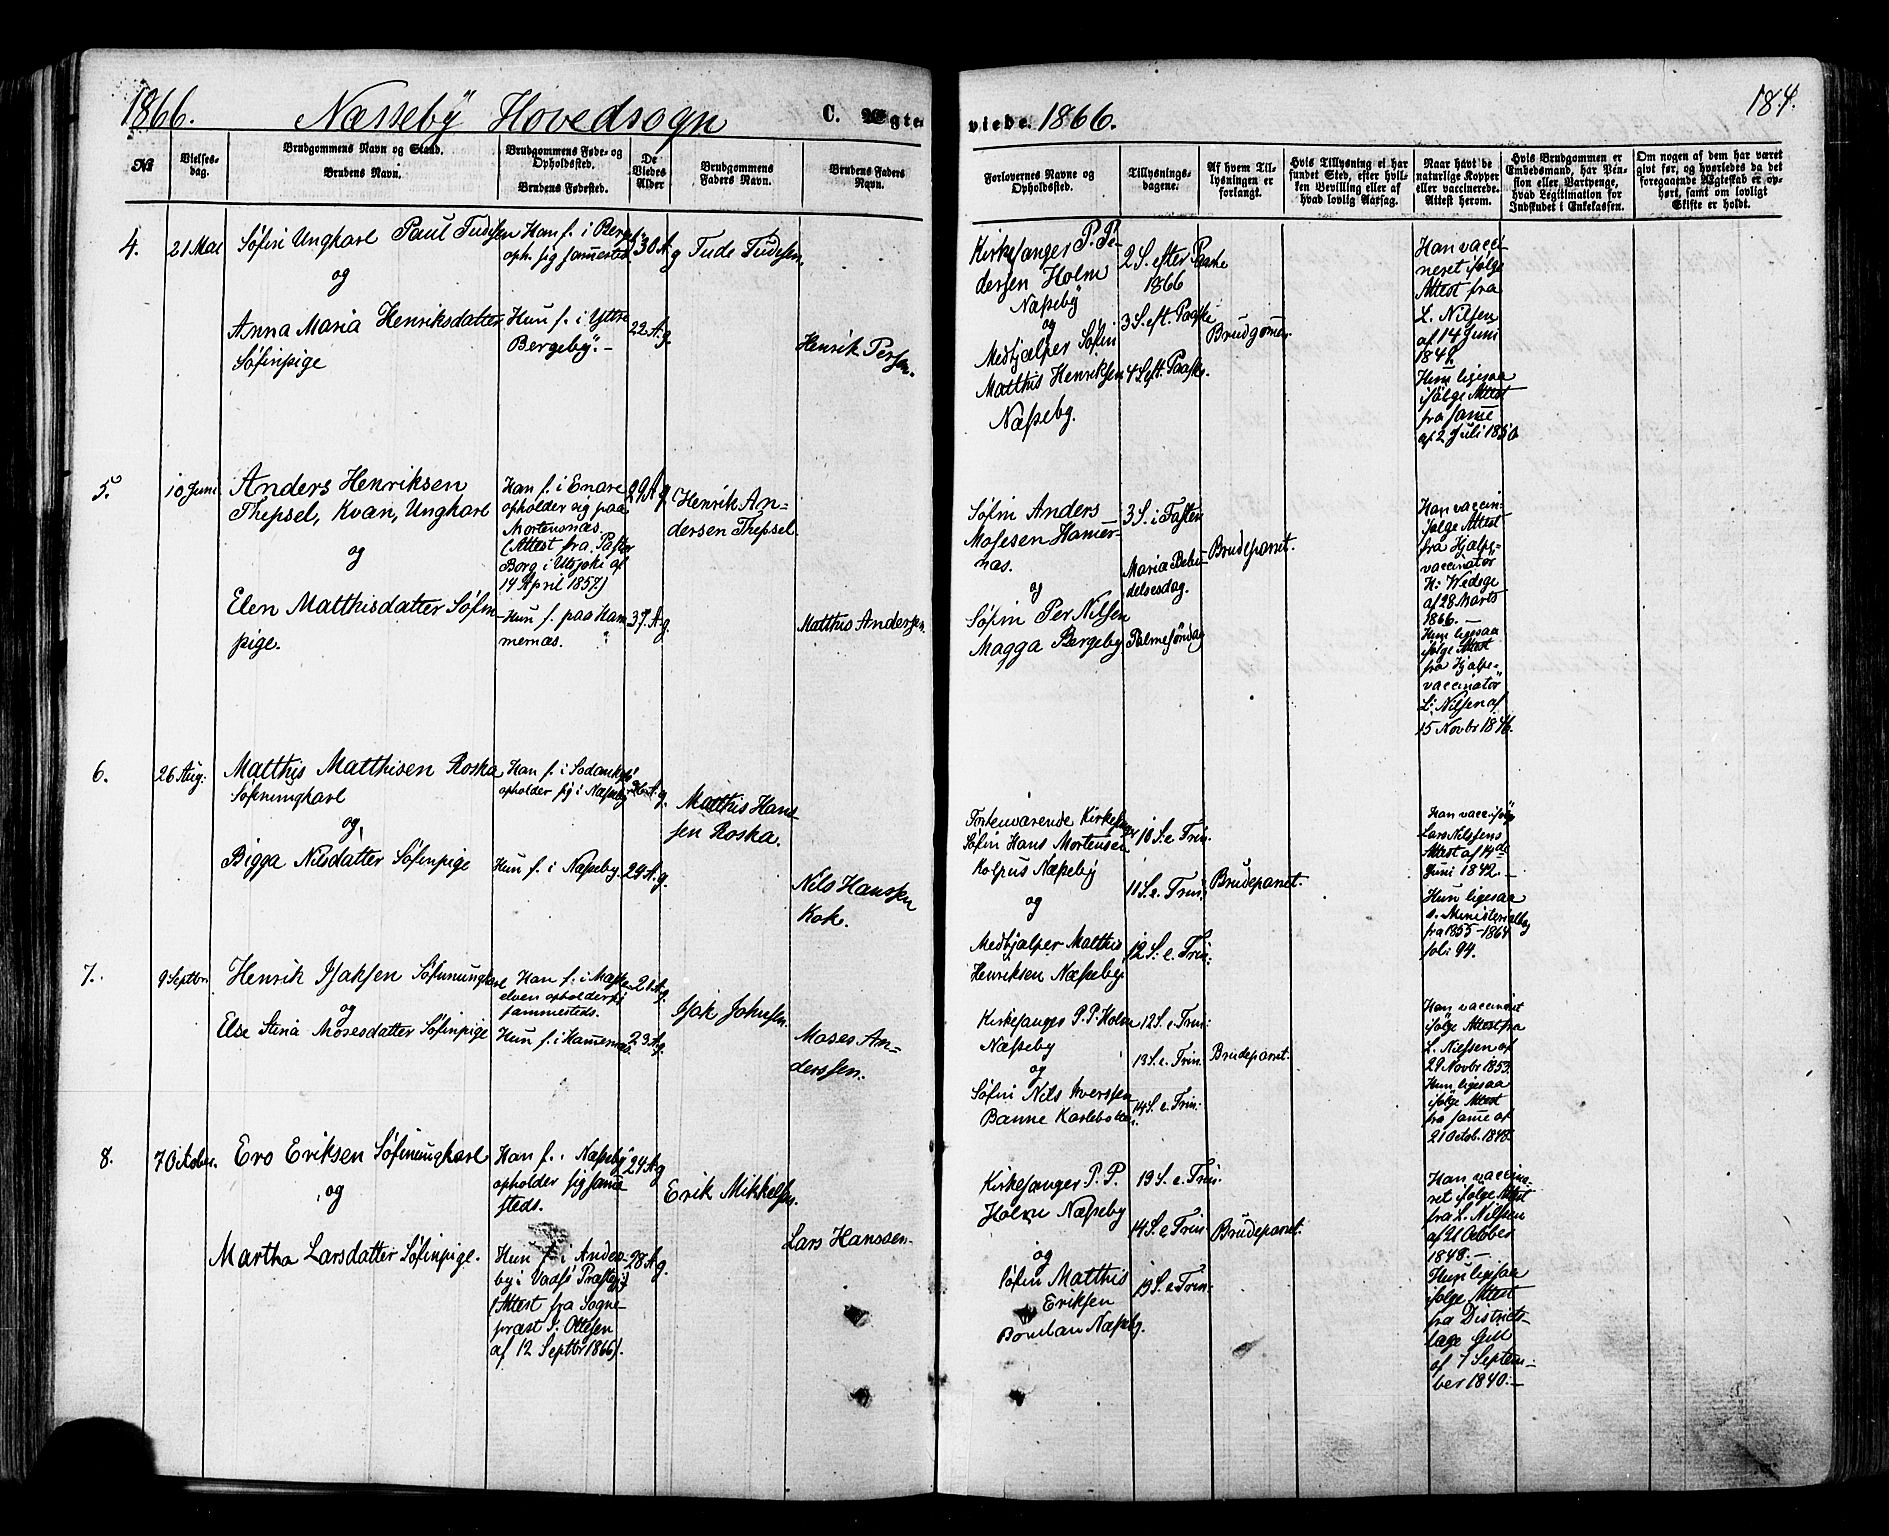 1866. Næsseby Hovedsogn C. Ægte-
viede. 1866. 184.
No
Vielses-
dag.
Brudgommens Navn og Stand.
Brudens Navn.
Brudgommens Føde- og
Opholdssted.
Brudens Fødested.
De
Viedes
Alder
Brudgommens
Faders Navn.
Brudens Faders
Navn.
Forlovernes Navne og
Opholdssted.
Tillysnings-
dagene.
Af hvem Til-
lysningen er
forlangt.
Hvis Tillysning ei har
fundet Sted, efter hvil-
ken Bevilling eller af
hvad lovlig Aarsag.
Naar havt de
naturlige Kopper
eller vaccinerede.
Attest herom.
Hvis Brudgommen er
Embedsmand, har Pen-
sion eller Vartpenge,
hvad Legitimation for
Indskudet i Enkekassen.
Om nogen af dem har været
givt før, og hvorledes da det
foregaaende Ægteskab er op-
hørt, samt om lovligt
Skifte er holdt.
4.
21 Mai
Søfin Ungkarl Paul Tudesen
og
Anna Maria Henriksdatter
Søfinpige
Han f. i Bergeby
oph. sig sammested
Hun f. i Yttre
Bergeby. –
30 A g
22 A. g.
Tude Tudesen.
Henrik Persen.
Kirkesanger P. Pe-
dersen Holm
Næsseby
og
Medhjælper Søfin
Matthis Henriksen
Næsseby.
2 S. efter Paaske
1866
3 S. eft. Paaske
4 S. eft. Paaske.
Brudgommen
Han vacci-
neret ifølge
Attest fra
L. Nilsen
af 14 Juni
1842
Hun ligesaa
ifølge Attest
fra samme
af 2 Juli 1850
5.
10 Juni
Anders Henriksen
Thepsel, Kvæn, Ungkarl
og
Elen Matthisdatter Søfin-
pige.
Han f. i Enare
opholder sig paa
Mortensnæs.
(Attest fra Pastor
Borg i Utsjoki af
14 April 1857)
Hun f. paa Ham
mernæs.
29 A g.
37 A. g.
Henrik An-
dersen Thepsel
Matthis Andersen.
Søfin Anders
Mosesen Hammer-
næs.
og
Søfin Per Nilsen
Magga Bergeby
3 S. i Fasten
Maria Bebu-
delsesdag.
Palmesøndag
Brudeparret.
Han vaccin.
ifølge Attest
fra Hjælpe-
vaccinatør
H. Wedege
af 28 Marts
1866. –
Hun ligesaa
ifølge Attest
fra Hjælpe-
vaccinatør
L. Nilsen af
15 Novbr 1846.
6.
26 Aug:
Matthis Matthisen Roska
Søfinungkarl
og
Bigga Nilsdatter Søfinpige
Han f. i Sodankylä
opholder sig i Næsseby
Hun f. i Næsseby.
26 A. g.
24 A. g.
Matthis Han-
sen Roska.
Nils Hanssen
Kok.
Forhenværende Kirkesanger
Søfin Hans Mortensen
Kolpus Næsseby
og
Medhjælper Matthis
Henriksen Næsseby.
10 S. e. Trin.
11 S. e. Trin.
12 S. e. Trin.
Brudeparret.
Han vacc. ifølge
Lars Nilssens
Attest af 14de
Juni 1842. –
Hun ligesaa
s. Ministerialbog
fra 1855–1864
foli 94.
7.
9 Septbr.
Henrik Isaksen Søfinungkarl
og
Else Stina Mosesdatter Søfinpige
Han f. i Maske-
elven opholder sig
sammesteds.
Hun f. i Hammernæs.
21 A. g.
23 A. g.
Isak Johnsen.
Moses An-
derssen.
Kirkesanger P. P. Holm
Næsseby
og
Søfin Nils Iverssen
Banne Karlebotten.
12 S. e. Trin.
13 S. e. Trin.
14 S. e. Trin.
Brudeparret.
Han vaccineret
ifølge Attest fra
L. Nilssen af
29 Novbr 1853.
Hun ligesaa
ifølge Attest
fra samme af
21 Octob. 1848.
8.
7 October.
Ero Eriksen Søfinungkarl
og
Martha Larsdatter Søfinpige.
Han f. i Næsseby
opholder sig samme
steds.
Hun f. i Andes-
by i Vadsø Præstegj.
(Attest fra Sogne-
præst J. Ottesen
af 12 Septbr 1866).
24 A g
28 A g.
Erik Mikkelsen.
Lars Hanssen.
Kirkesanger P. P.
Holm Næsseby
og
Søfin Matthis
Eriksen
Næsseby.
13 S. e. Trin.
14 S. e. Trin.
15 S. e. Trin.
Brudeparret.
Han vaccine-
ret ifølge Attest
fra L. Nilssen
af 21 October
1848. –
Hun ligesaa
ifølge Attest
fra Districts-
læge Gill
af 7 Septem-
ber 1840. –